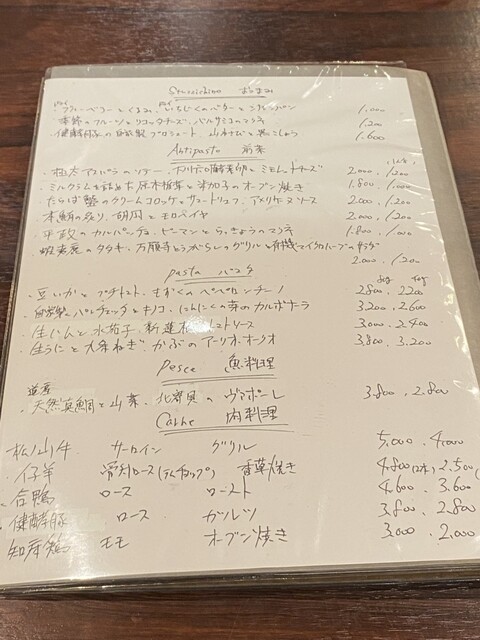 Stuzzichino おつまみ
ブルーベリーとくるみ、いちじくのバターとフレンチパン 1,000
季節のフルーツとリコッタチーズ、バルサミコのマリネ 1,200
健酵豚の自家製プロシュート、山わさびと黒こしょう 1,600
Antipasto 前菜
極太アスパラのソテー、 卵とミモレットチーズ 2,000 . 1,200
ミルクラム 原木椎茸と のオーブン焼き 1,800 . 1,000
たらば蟹のクリームコロッケ、 アメリケーヌソース 2,000 . 1,200
本鮪の炙り、胡瓜とモロヘイヤ 2,000 . 1,200
平政のカルパッチョ、ピーマンとらっきょうのマリネ 1,800 . 1,000
蝦夷鹿のタタキ、万願寺とうがらしのグリルと有機 のサラダ
2,000 . 1,200
pasta パスタ
豆いかとプチトマト、もずくのペペロンチーノ 2,800 . 2,200
自家製パンチェッタとキノコ、にんにくの芽のカルボナーラ 3,200 . 2,600
生 と水茄子、新蓮根 トマトソース 3,000 . 2,400
生うにと九条ねぎ、かぶのアーリオ・オーリオ 3,800 . 3,200
Pesce 魚料理
道産
天然真鯛と山菜、北寄貝のヴァポーレ 3,800 . 2,800
Carne 肉料理
松山牛 サーロイン グリル 5,000 . 4,000
仔羊 骨付ロース(ラムチョップ) 香草焼き 4,800(2本) . 2,500(
合鴨 ロース ロースト 4,600 . 3,600
健酵豚 ロース ガルツ 3,800 . 2,800
知床鶏 モモ オーブン焼き 3,000 . 2,000